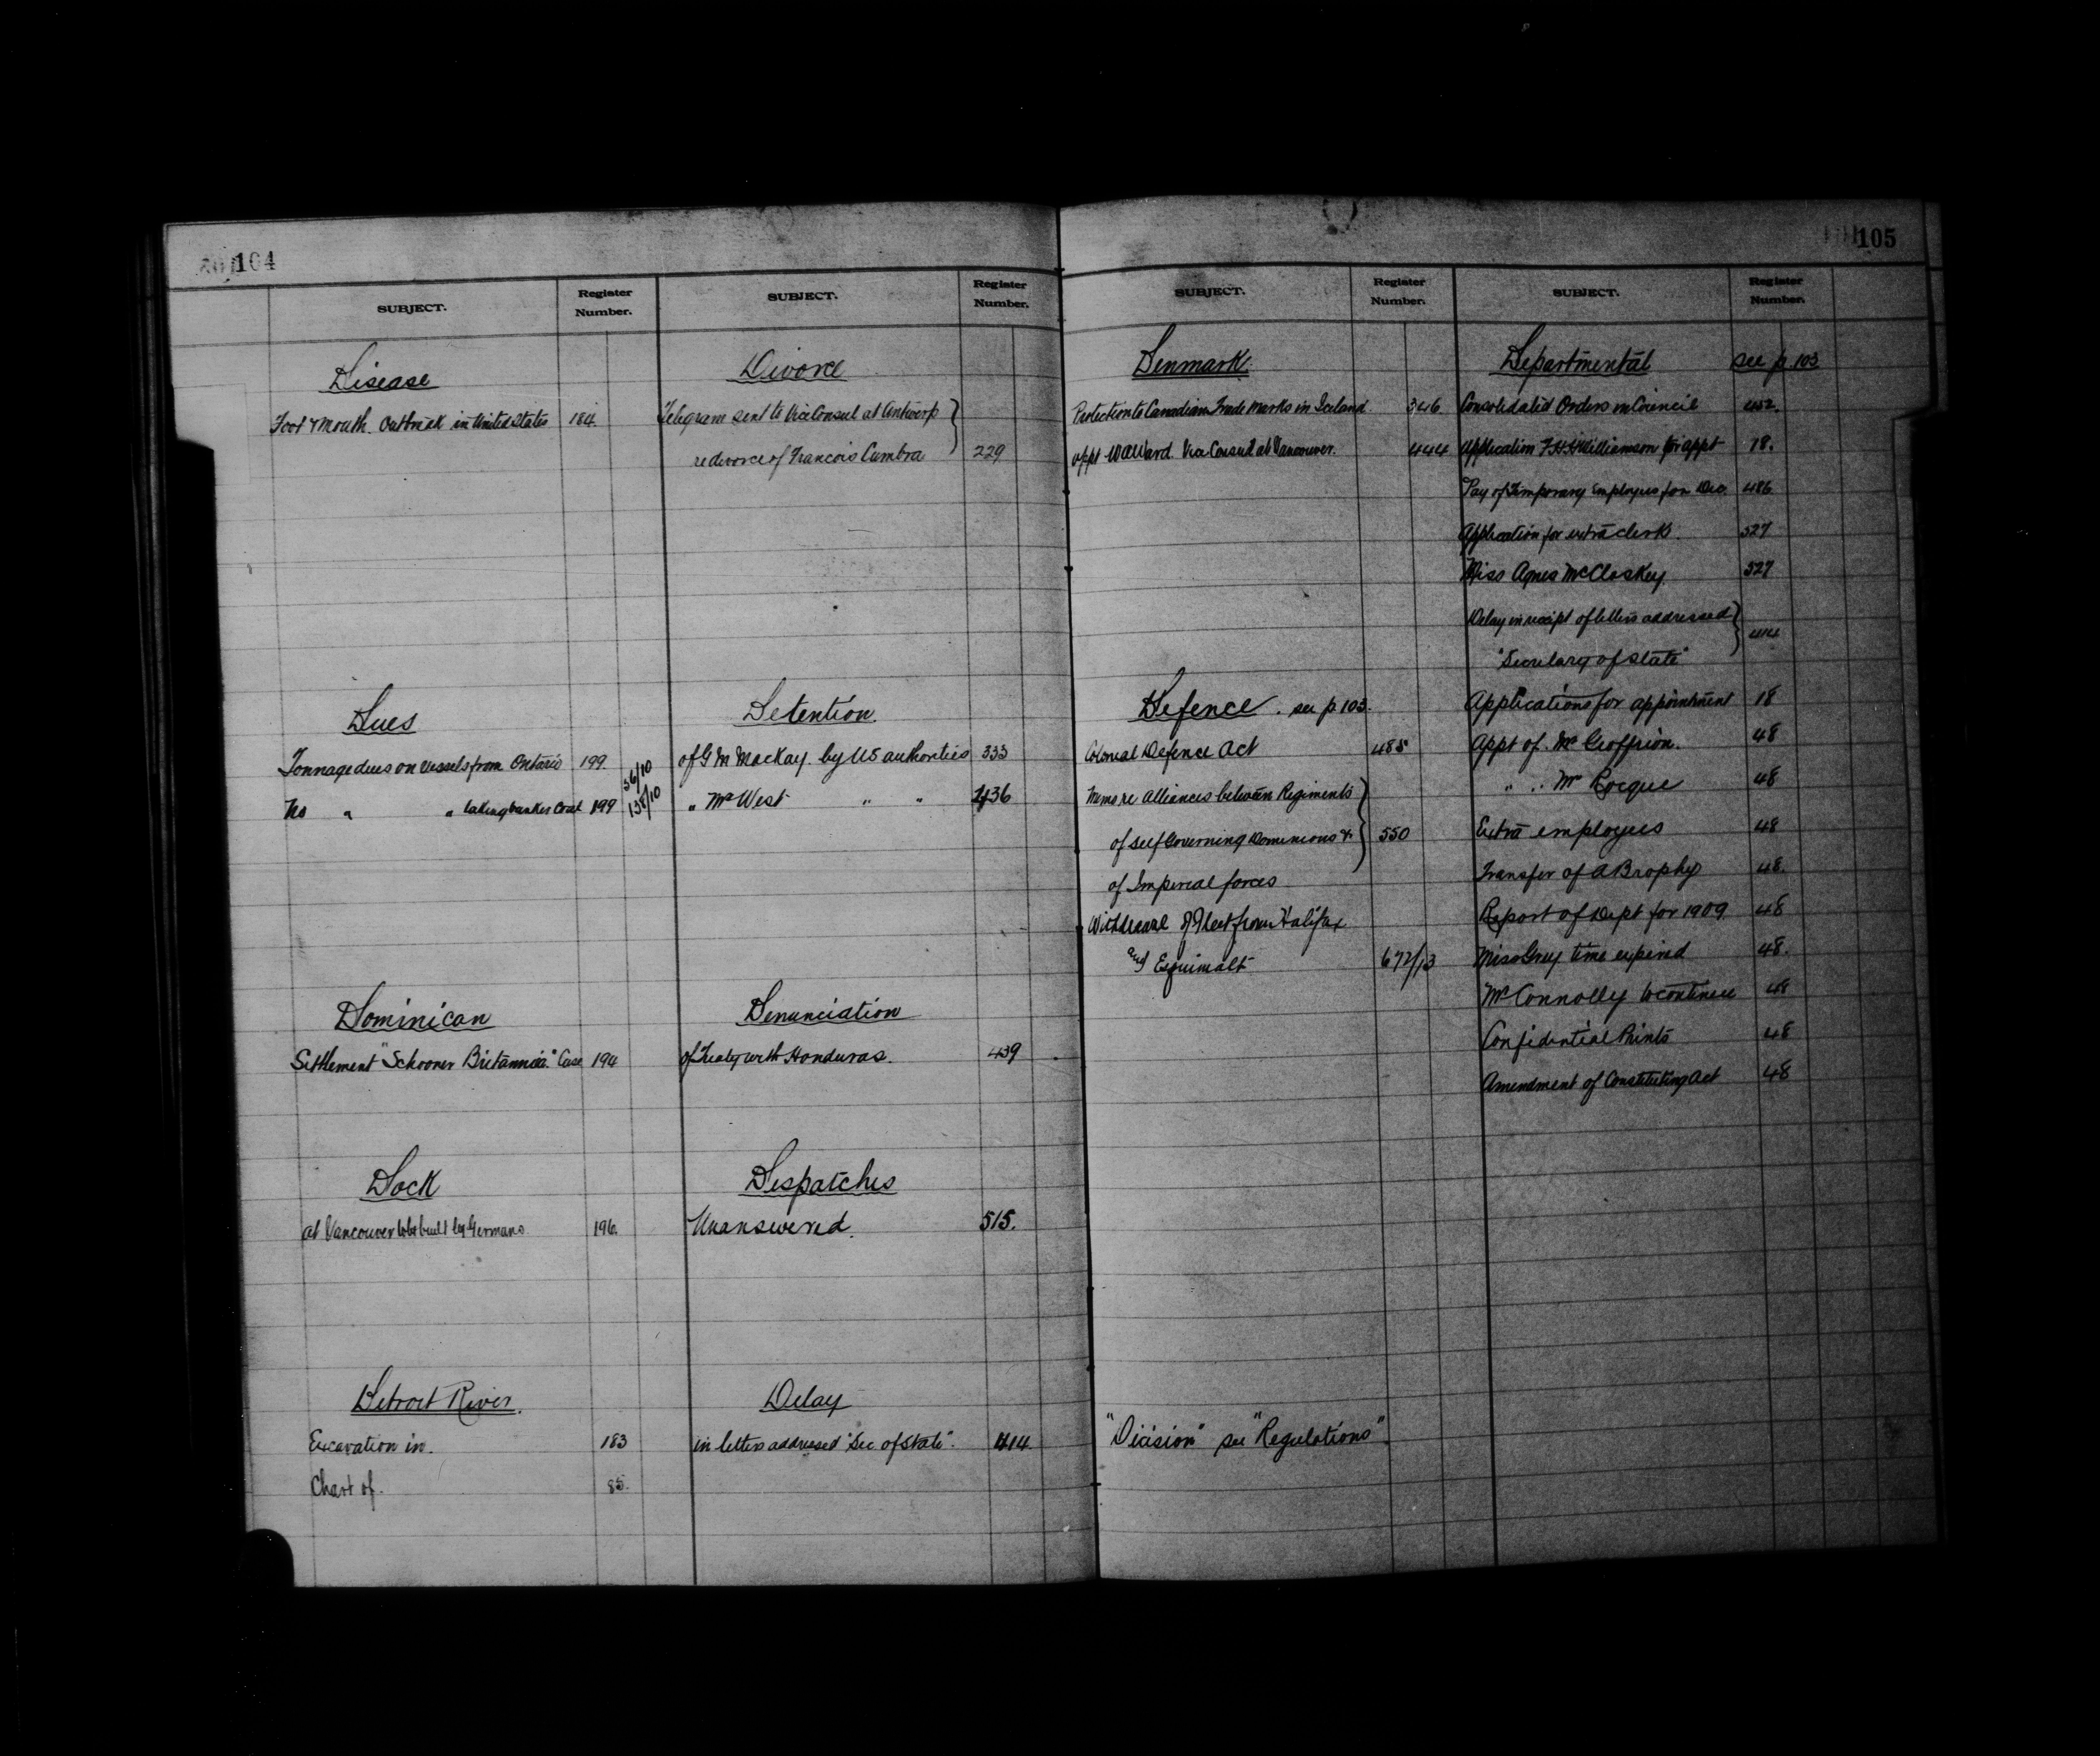 104
SUBJECT. Register Number.
Disease
Foot & Mouth. Outbreak in United States 184
Dues
Tonnage dues on vessels from Ontario 199. 56/10
No " " taking bunker Coal 199 138/10
Dominican
Settlement "Schooner Britannia" Case 194
Dock
at Vancouver to be built by Germans 196.
Detroit River.
Excavation in. 183
Chart of. 85.
SUBJECT. Register Number.
Divorce
Telegram sent to Vice Consul at Antwerp
re divorce of Francois Cumbra 229
Detention.
of G M Mackay. by US authorities 333
" Mr West " " 436
Denunciation
of Treaty with Honduras. 439
Despatches
Unanswered. 515.
Delay
in letters addressed "Sec. of State". 414
105
SUBJECT. Register Number.
Denmark.
Protection to Canadian Trade Marks in Iceland. 346.
appt W A Ward. Vice Consul at Vancouver. 444
Defence. see p 103.
Colonial Defence Act 485
Memo re Alliances between Regiments
of self Governing Dominions & 550
of Imperial forces
Withdrawal of Fleet from Halifax
and Esquimalt 672/13
"Division" see "Regulations".
SUBJECT. Register Number.
Departmental see p 103
Consolidated Orders in Council 452.
Application F H H Williamson for appt 18.
Pay of Temporary Employees for Dec. 486
Application for extra clerk. 527
Miss Agnes McCloskey. 527
Delay in receipt of letters addressed
"Secretary of State" 414
Applications for appointment 18
Appt of Mr Geoffrion. 48
" " Mr Rocque 48
Extra employees 48
Transfer of A Brophy 48.
Report of Dept for 1909 48
Miss Grey time expired 48.
Mr Connolly to continue 48
Confidential Prints 48
Amendment of Constituting Act 48